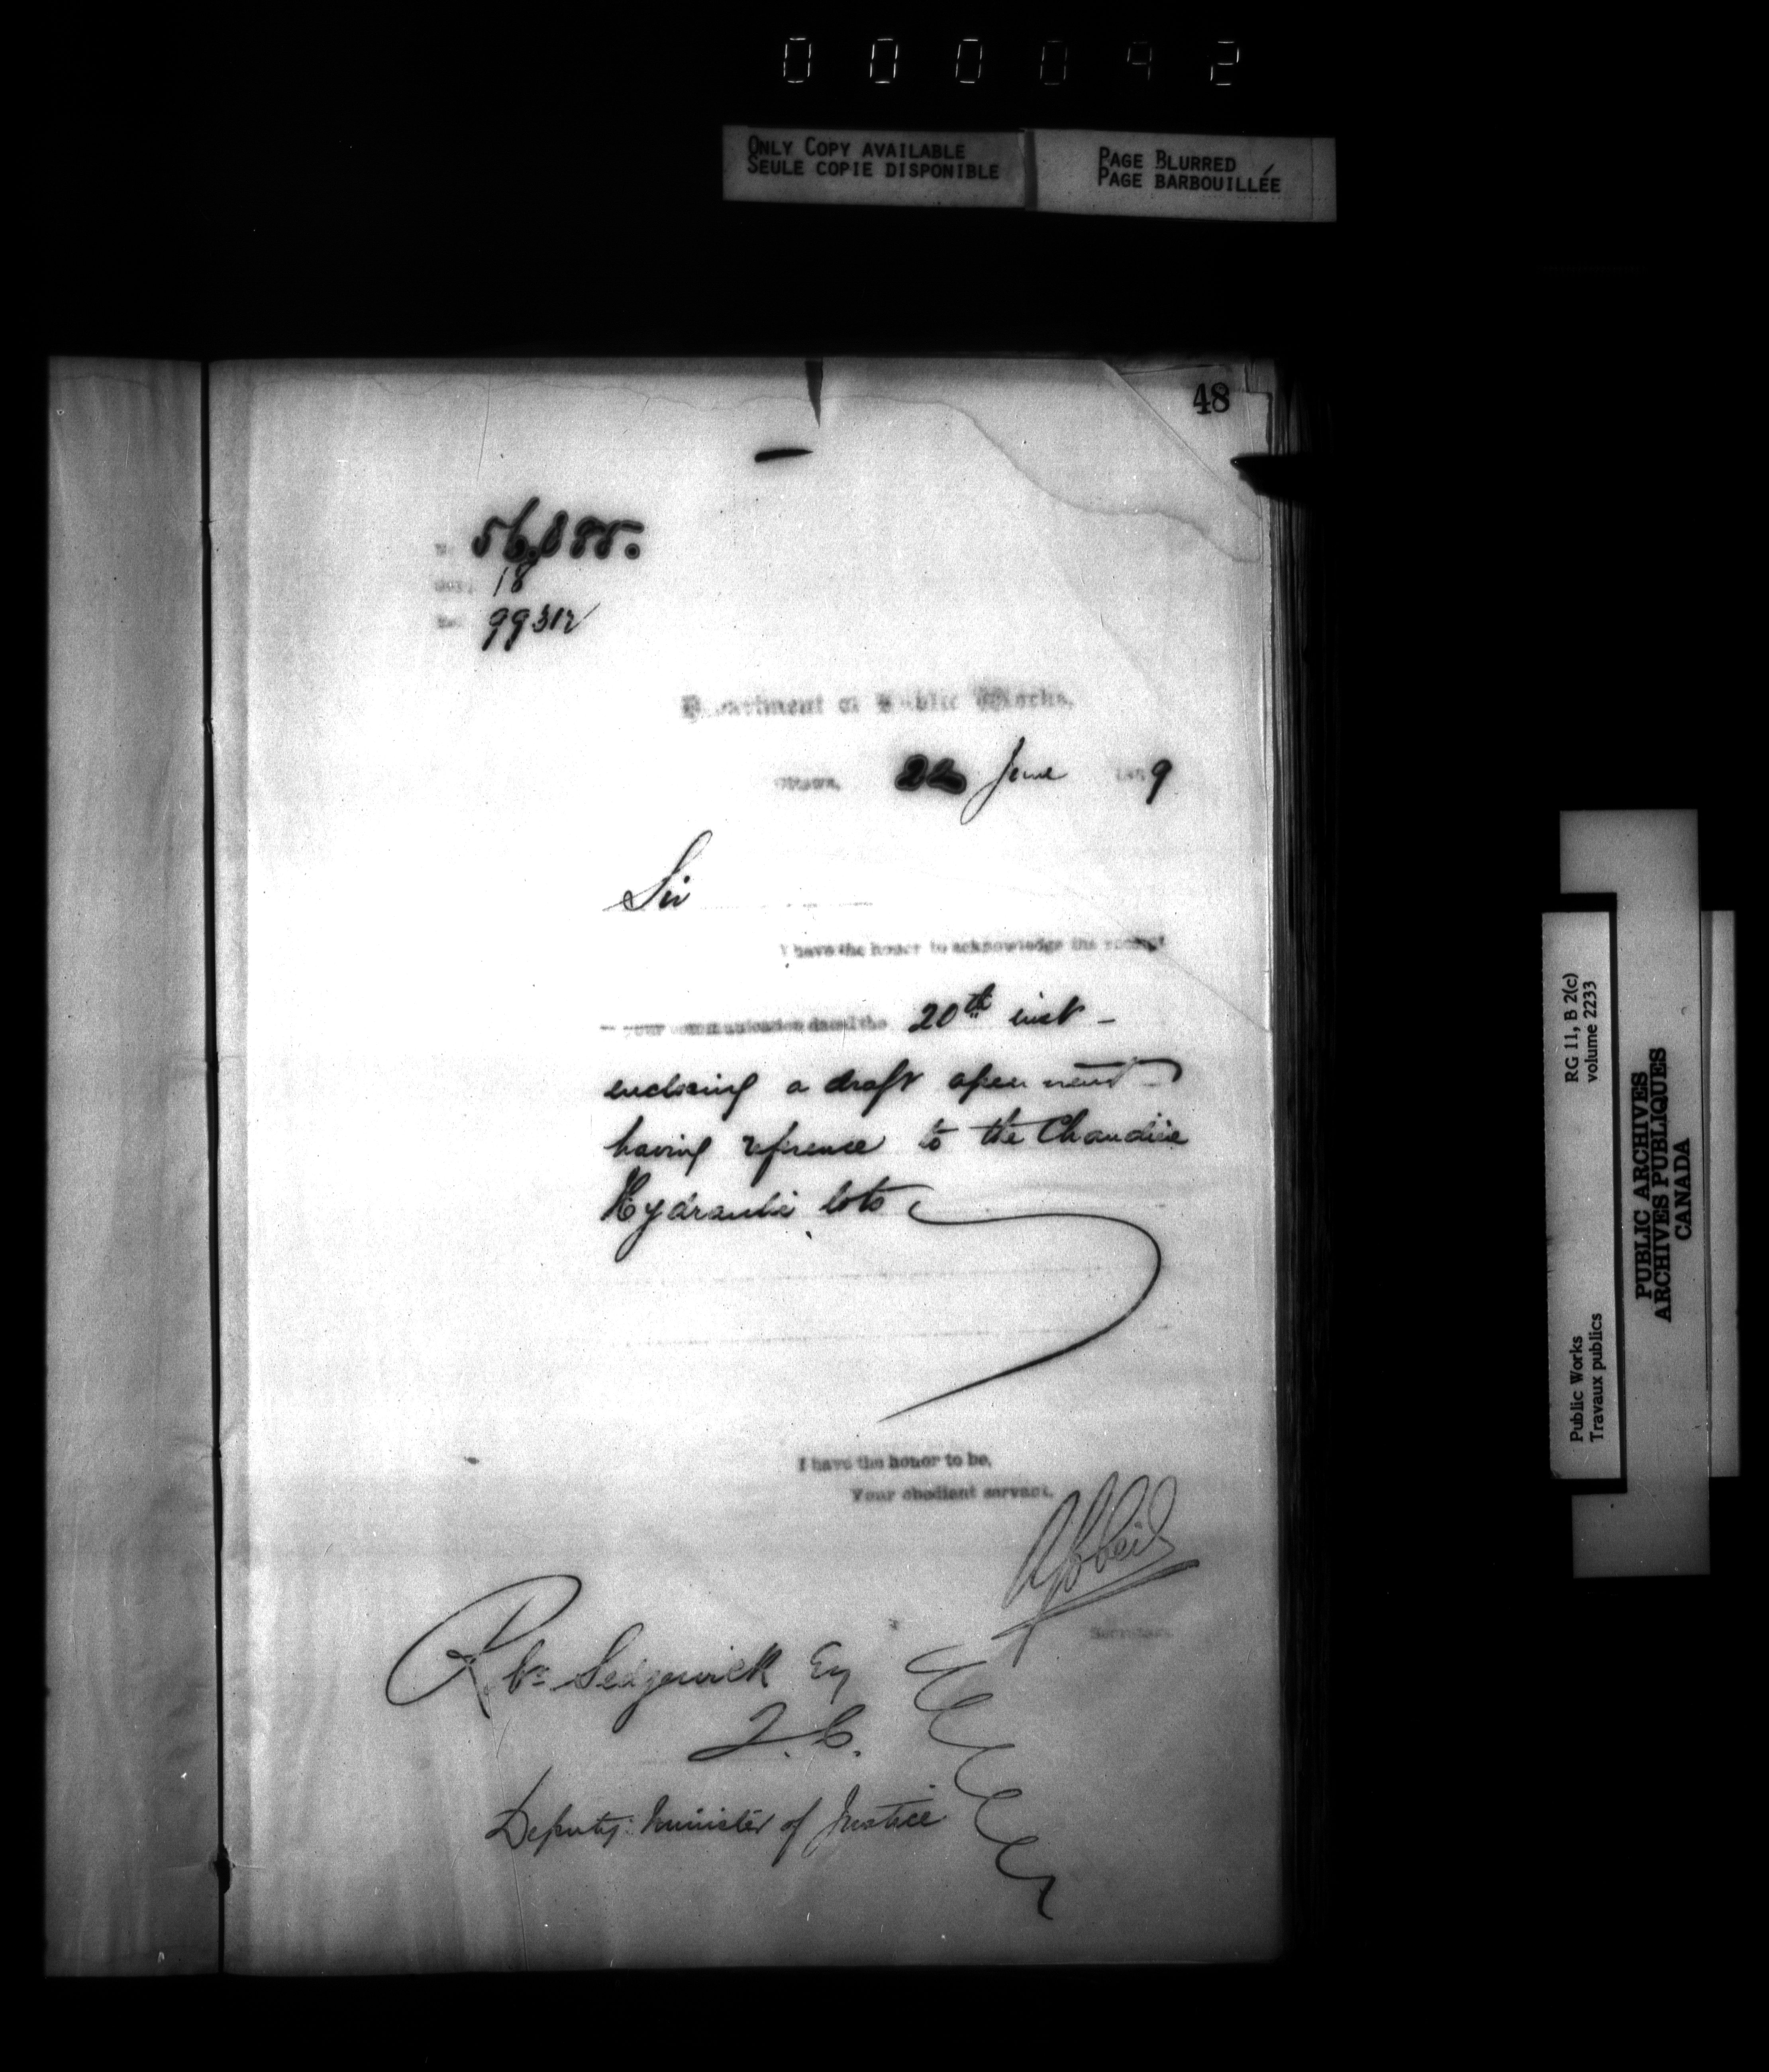 000092
ONLY COPY AVAILABLE
SEULE COPIE DISPONIBLE
PAGE BLURRED
PAGE BARBOUILLÉE
48
No. 56,885.
18
99312
Department of Public Works,
Ottawa, 22 June 1889
Sir
I have the honor to acknowledge the receipt
your communication dated the 20th inst -
enclosing a draft agreement
having reference to the Chaudiere
Hydraulic lots
I have the honor to be,
Your obedient servant,
Secretary.
Sedgewick Esq
Q. C.
Deputy Minister of Justice
RG 11, B 2(c)
volume 2233
Public Works
Travaux publics
PUBLIC ARCHIVES
ARCHIVES PUBLIQUES
CANADA